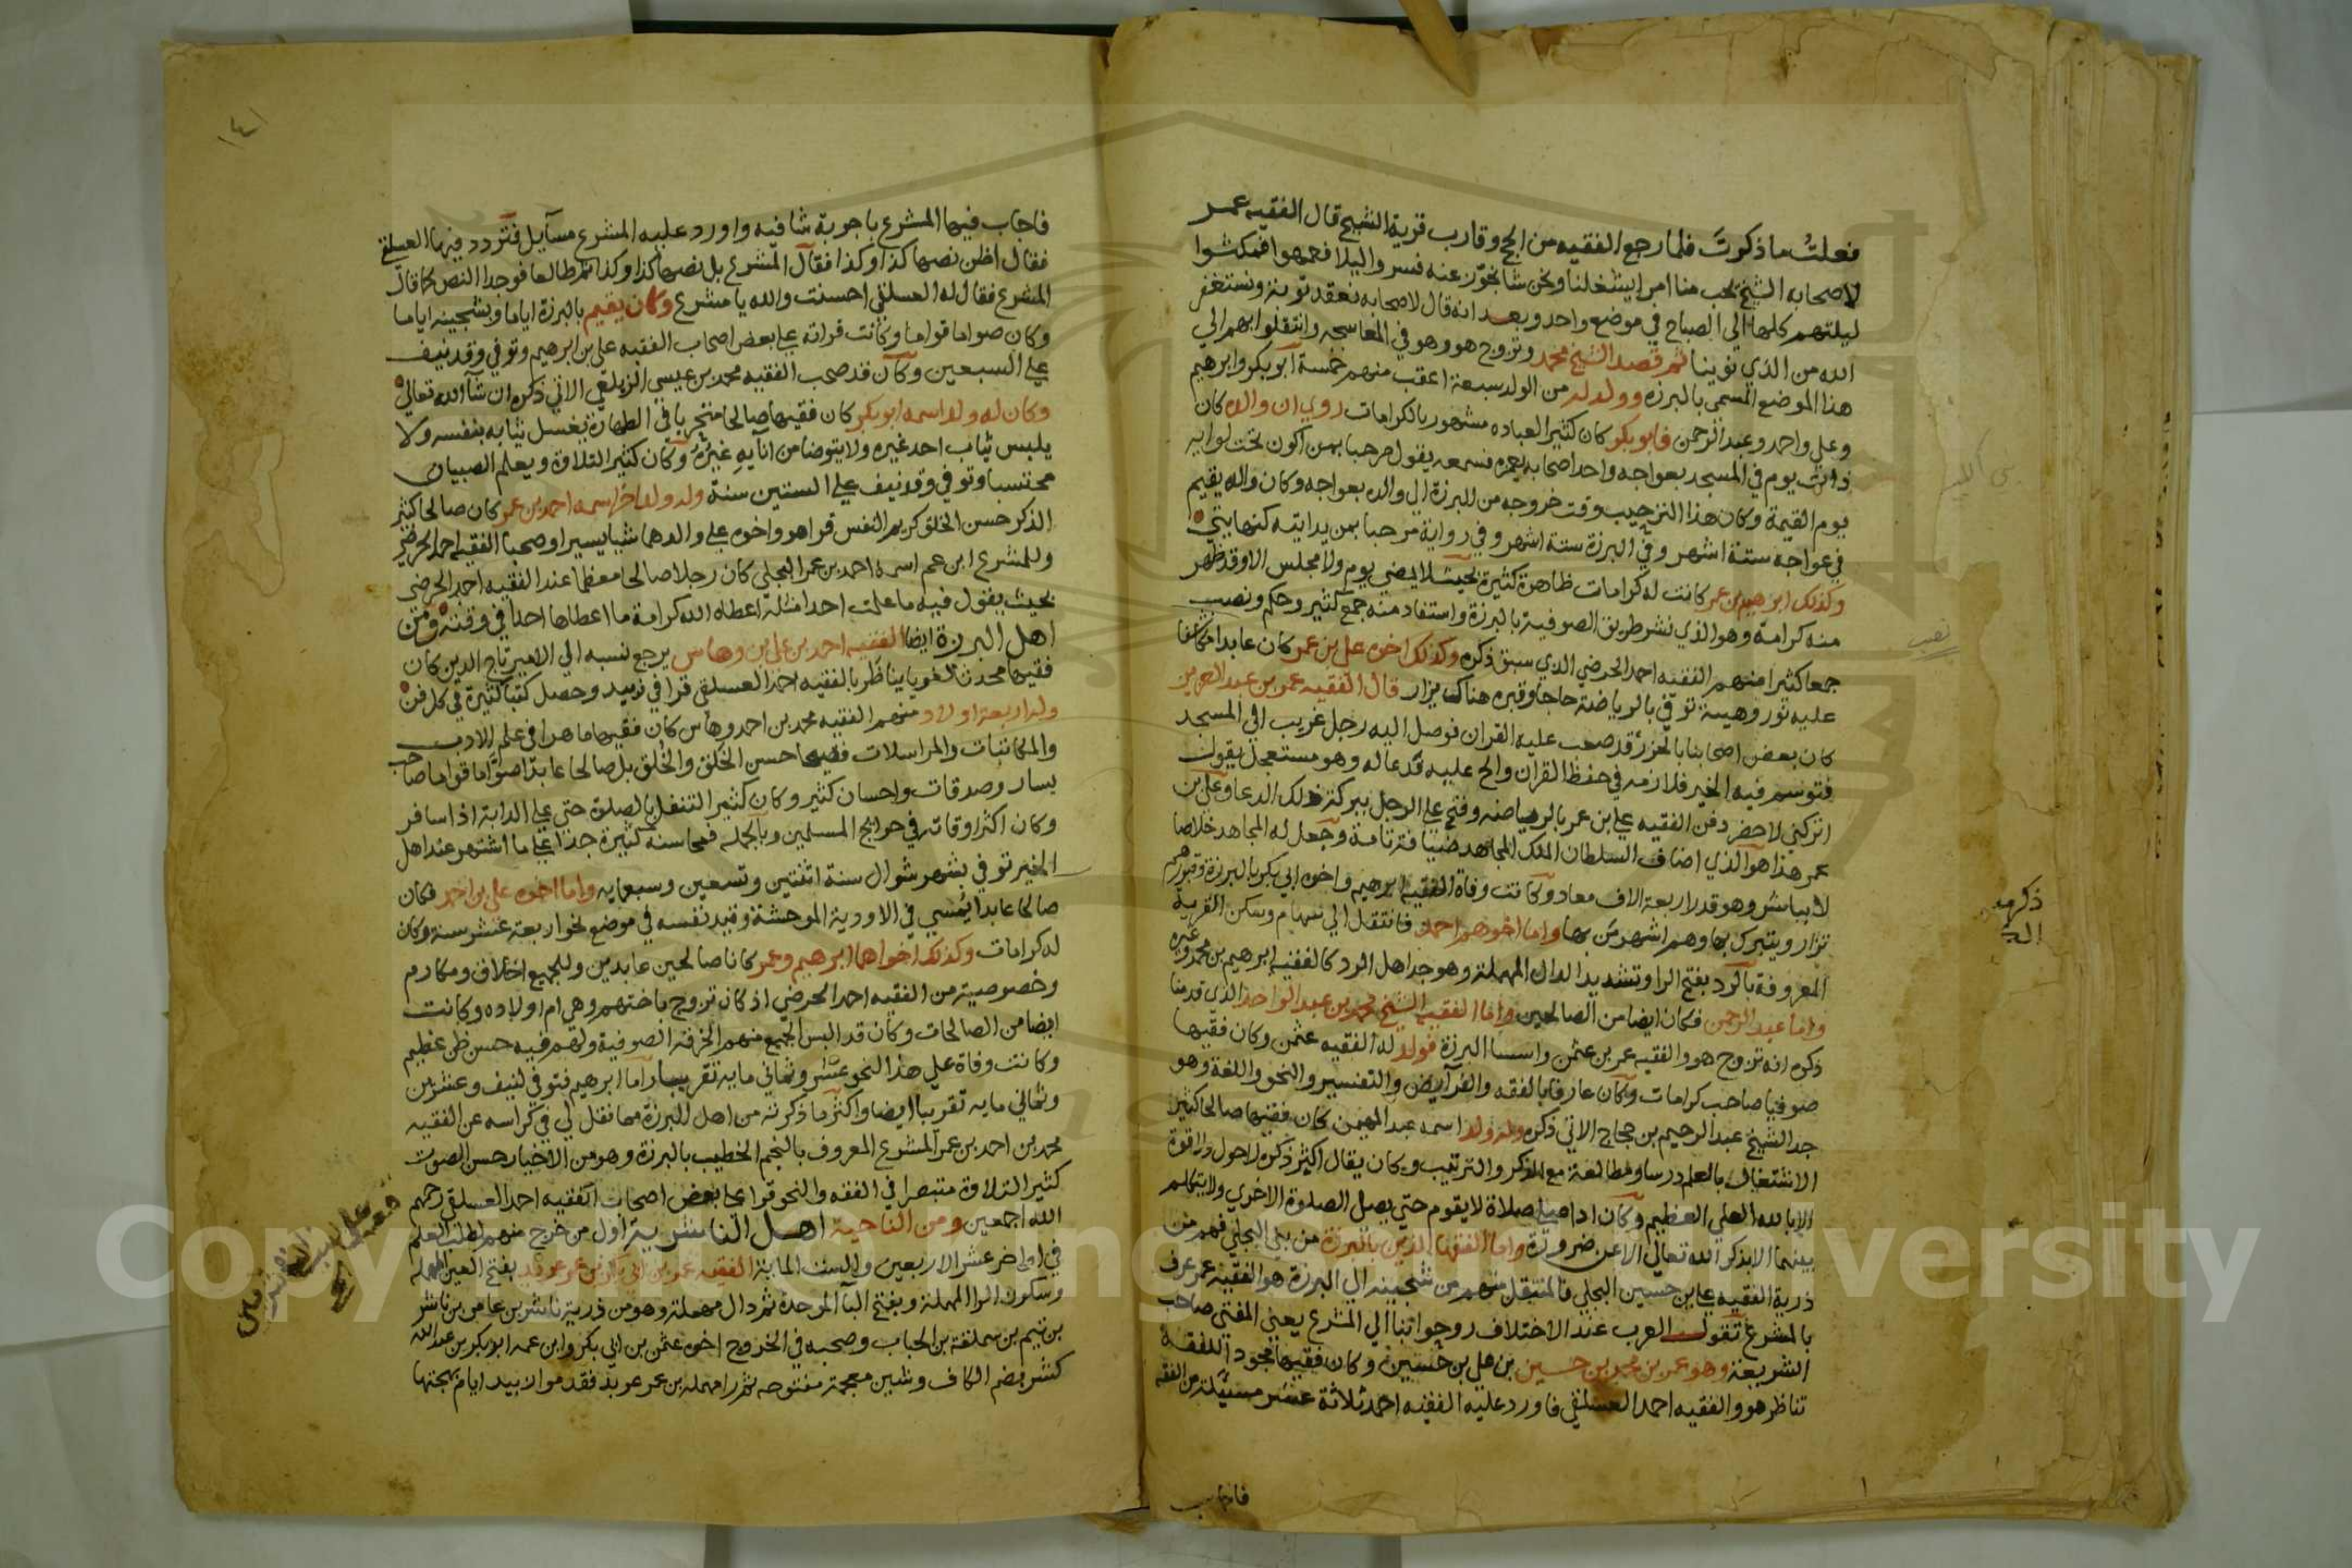 فعلتُ ما ذكرتَ فلما رجع الفقيه من الحج وقارب قرية الشيخ قال الفقيه عمر
لاصحابه الشيخ يحب منا امرا يشغلنا ونحن شا نجوز عنه فسروا ليلا فعمهوا فمكثوا
ليلتهم كلها الى الصباح في موضع واحد وبعد انه قال لاصحابه نعقد توبة ونستغفر
الله من الذي نوينا ثم قصد الشيخ محمد وتزوج هو وهو في المعاسجه وانتقلوا بهم الي
هذا الموضع المسمى بالبرزه وولد له من الولد سبعة اعقب منهم خمسة ابو بكر وابرهيم
وعلي واحمد وعبد الرحمن فابو بكر كان كثير العباده مشهور بالكرامات روي ان والده كان
ذات يوم في المسجد بعواجه واحد اصحابه يعمره فسمعه يقول مرحبا بمن اكون تحت لوايه
يوم القيمة وكان هذا الترحيب وقت خروجه من البرزة الي والده بعواجه وكان والده يقيم
في عواجه ستة اشهر وفي البرزة ستة اشهر وفي رواية مرحبا بمن بدايته كنهايتي
وكذلك ابرهيم بن عمر كانت له كرامات ظاهرة كثيرة بحيث لا يمضي يوم ولا مجلس الا وقد ظهر
منه كرامة وهو الذي نشر طريق الصوفية بالبرزة واستفاد منه جمع كثير وحكم ونصب
جمعا كثيرا منهم الفقيه احمد الحرضي الذي سبق ذكره وكذلك اخوه علي بن عمر كان عابدا مكاشفا
عليه نور وهيبة توفي بالرياضة حاجا وقبره هناك يزار قال الفقيه عمر بن عبد العزيز
كان بعض اصحابنا بالحرز قد صعب عليه القران فوصل اليه رجل غريب الي المسجد
فتوسم فيه الخير فلازمه في حفظ القران والح عليه فدعا له وهو مستعجل يقول
اتركني لاحضر دفن الفقيه علي بن عمر بالرياضه وفتح على الرجل ببركة ذلك الدعا وعلي بن
عمر هذا هو الذي اضاف السلطان الملك المجاهد ضيافة تامة وجعل له المجاهد خلاصا
لا يباشر وهو قدر اربعة الاف معاد وكانت وفاة الفقيه ابرهيم واخوه ابي بكر بالبرزة وقبورهم
تزار ويتبرك بها وهم اشهر من بها واما اخوهم احمد فانتقل الي سهام وسكن القرية
المعروفة بالرد بفتح الرا وتشديد الدال المهملة وهو جد اهل الرد كالفقيه ابرهيم بن محمد وغيره
واما عبد الرحمن فكان ايضا من الصالحين واما الفقيه الشيخ محمد بن عبد الواحد الذي قدمنا
ذكره انه تزوج هو والفقيه عمر بن عثمن واسسا البرزة فولد له الفقيه عثمن وكان فقيها
صوفيا صاحب كرامات وكان عارفا بالفقه والفرآيض والتفسير والنحو واللغة وهو
جد الشيخ عبد الرحيم بن حجاج الاتي ذكره وله ولد اسمه عبد المهيمن كان فقيها صالحا كثير
الاشتغال بالعلم درسا ومطالعة مع الذكر والترتيب وكان يقال اكثر ذكره لا حول ولا قوة
الا بالله العلي العظيم وكان اذا صلى صلاة لا يقوم حتي يصل الصلوة الاخري ولا يتكلم
بينهما الا بذكر الله تعالى الا عن ضرورة واما الفقها الذين بالبرزة من بني البجلي فهم من
ذرية الفقيه علي بن حسين البجلي فالمنتقل منهم من شجينه الي البرزة هو الفقيه عمر عرف
بالمشرع تقول العرب عند الاختلاف روحوا بنا الي المشرع يعني المفتي صاحب
الشريعة وهو عمر بن محمد بن حسين بن علي بن حسين وكان فقيها مجود اللفقه
تناظر هو والفقيه احمد العسلقي فاورد عليه الفقيه احمد ثلاثة عشر مسئلة من الفقه
فاجاب
نصب
ذكرهم
١٤١
فاجاب فيها المشرع باجوبة شافيه واورد عليه المشرع مسآيل فتردد فيها العسلقي
فقال اظن نصها كذا وكذا فقال المشرع بل نصها كذا وكذا ثم طالعا فوجدا النص كما قال
المشرع فقال له العسلقي احسنت والله يا مشرع وكان يقيم بالبرزة اياما وبشجينه اياما
وكان صواما قواما وكانت قراته على بعض اصحاب الفقيه علي بن ابرهيم وتوفي وقد نيف
على السبعين وكان قد صحب الفقيه محمد بن عيسي الزيلعي الاتي ذكره ان شآ الله تعالى
وكان له ولد اسمه ابو بكر كان فقيها صالحا متحريا في الطهارة يغسل ثيابه بنفسه ولا
يلبس ثياب احد غيره ولا يتوضا من انآيه غيرُه وكان كثير التلاوة ويعلم الصبيان
محتسبا وتوفي وقد نيف على الستين سنة وله ولد اخر اسمه احمد بن عمر كان صالحا كثير
الذكر حسن الخلق كريم النفس قرا هو واخوه على والدهما شيا يسيرا وصحبا الفقيه احمد الحرضي
وللمشرع ابن عم اسمه احمد بن عمر البجلي كان رجلا صالحا معظما عند الفقيه احمد الحرضي
بحيث يقول فيه ما علمت احدا مثله اعطاه الله كرامة ما اعطاها احدا في وقته ومن
اهل البرزة ايضا الفقيه احمد بن علي بن وهاس يرجع نسبه الي الامير تاج الدين كان
فقيها محدثا لغويا يناظر بالفقيه احمد العسلقي قرا في زبيد وحصل كتبا كثيرة في كل فن
وله اربعة اولاد منهم الفقيه محمد بن احمد وهاس كان فقيها ماهرا في علم الادب
والمكاتبات والمراسلات فصيحا حسن الخَلق والخُلق بل صالحا عابدا صواما قواما صاحب
يسار وصدقات واحسان كثير وكان كثير التنفل بالصلوة حتي على الدابة اذا سافر
وكان اكثر اوقاته في حوايج المسلمين وبالجمله فمحاسنه كثيرة جدا على ما اشتهر عند اهل
الخير توفي بشهر شوال سنة اثنتين وتسعين وسبعمايه واما اخوه علي بن احمد فكان
صالحا عابدا يُمسي في الاودية الموحشة وقيد نفسه في موضع نحو اربعة عشر سنة وكان
له كرامات وكذلك اخواهما ابرهيم وعمر كانا صالحين عابدين وللجميع اخلاق ومكارم
وخصوصية من الفقيه احمد الحرضي اذ كان تزوج باختهم وهي ام اولاده وكانت
ايضا من الصالحات وكان قد البس الجميع منهم الخرقة الصوفية ولهم فيه حسن ظن عظيم
وكانت وفاة علي هذا لنحو عشر وثماني مايه تقريبا واما ابرهيم فتوفي لنيف وعشرين
وثماني مايه تقريبا ايضا واكثر ما ذكرته من اهل البرزة مما نقل لي في كراسه عن الفقيه
محمد بن احمد بن عمر المشرع المعروف بالنجم الخطيب بالبرزة وهو من الاخيار حسن الصوت
كثير التلاوة متبصرا في الفقه والنحو قرا على بعض اصحاب الفقيه احمد العسلقي رحمهم
الله اجمعين ومن الناحية اهل الناشرية اول من خرج منهم لطلب العلم
في اواخر عشر الاربعين والست الماية الفقيه عمر بن ابي بكر بن عمر عربد بفتح العين المهملة
وسكون الرا المهملة وبفتح البا الموحدة ثم دال مهملة وهو من ذرية ناشر بن عامر بن ناشر
بن تيم بن سملقة بن الحباب وصحبه في الخروج اخوه عثمن بن ابي بكر وابن عمه ابو بكر بن عبد الله
كشر بضم الكاف وشين معجمة مفتوحه ثم را مهمله بن عمر عربد فقدموا لابيد ايام بهجتها
Copyright © King Saud University